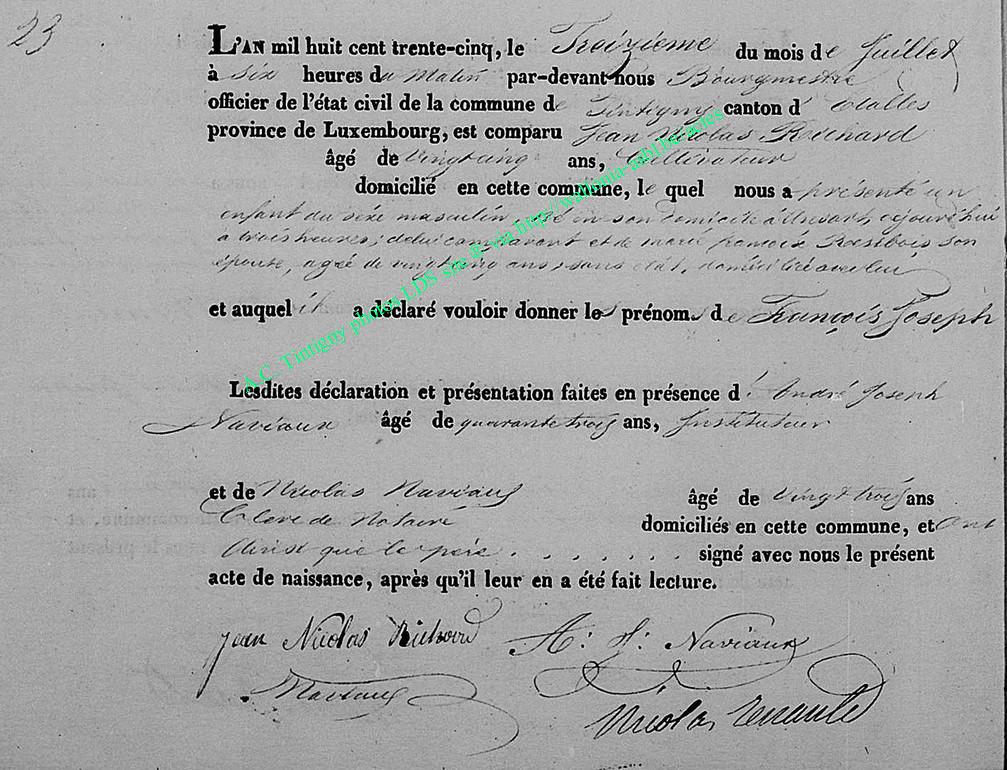 23
L'AN mil huit cent trente-cinq, le Treizieme du mois de Juillet
à Six heures du Matin par-devant nous Bourgmestre
officier de l'état civil de la commune de Tintigny canton d' Etalles
province de Luxembourg, est comparu Jean Nicolas
âgé de vingt cinq ans, Cultivateur
domicilié en cette commune, le quel nous a présenté un
enfant du séxe masculin, né en son domicile à ansart, aujourd'hui
a trois heures; de lui comparant et de marie son
épouse, agée de vingt cinq ans, sans état, domiciliée avec lui
et auquel il a déclaré vouloir donner les prénoms de François Joseph
Lesdites déclaration et présentation faites en présence d' André Joseph
Naviaux âgé de quarante trois ans, Instituteur
et de Nicolas Naviaux âgé de vingt trois ans
Clerc de Notaire domiciliés en cette commune, et ont
Ainsi que le père . . . . . . . signé avec nous le présent
acte de naissance, après qu'il leur en a été fait lecture.
Jean Nicolas Richard A: J: Naviaux
Naviaux
Nicolas
A.C. Tintigny photos LDS site à via http://wallonia-asbl.be/actes